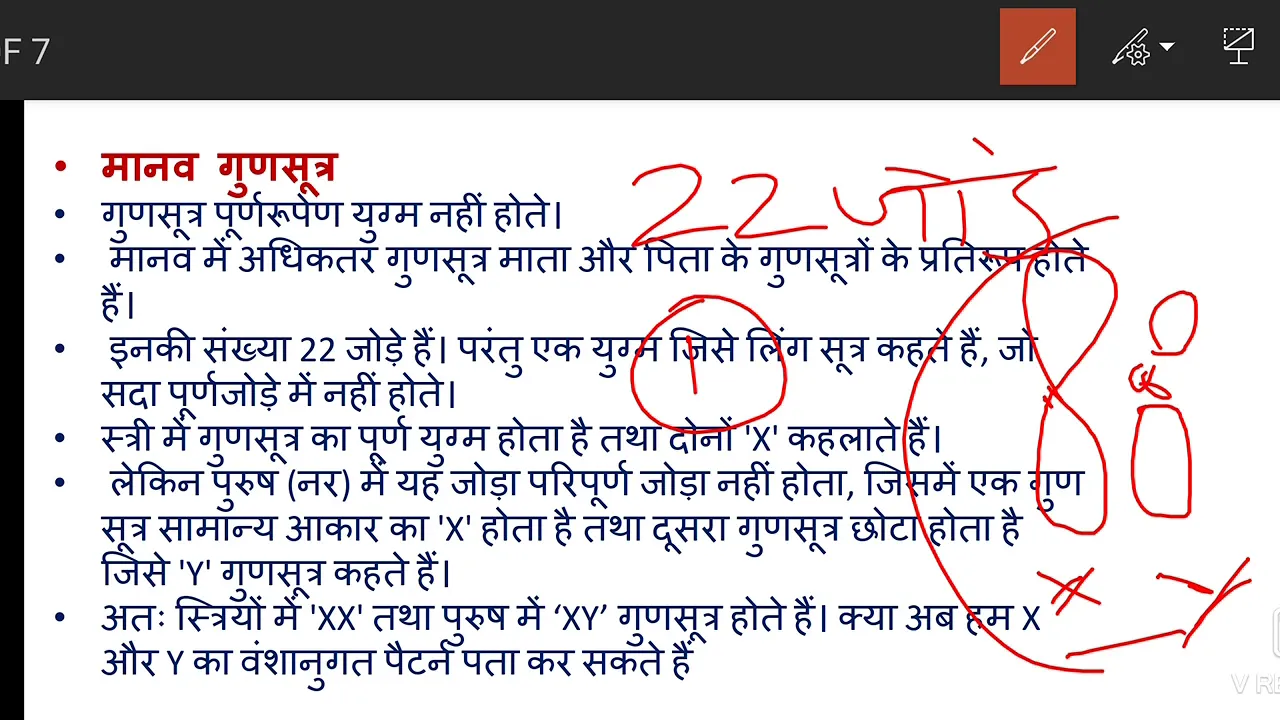 F 7
• मानव गुणसूत्र
• गुणसूत्र पूर्णरूपेण युग्म नहीं होते।
• मानव में अधिकतर गुणसूत्र माता और पिता के गुणसूत्रों के प्रतिरूप होते
हैं।
• इनकी संख्या 22 जोड़े हैं। परंतु एक युग्म जिसे लिंग सूत्र कहते हैं, जो
सदा पूर्णजोड़े में नहीं होते।
• स्त्री में गुणसूत्र का पूर्ण युग्म होता है तथा दोनों 'X' कहलाते हैं।
• लेकिन पुरुष (नर) में यह जोड़ा परिपूर्ण जोड़ा नहीं होता, जिसमें एक गुण
सूत्र सामान्य आकार का 'X' होता है तथा दूसरा गुणसूत्र छोटा होता है
जिसे 'Y' गुणसूत्र कहते हैं।
• अतः स्त्रियों में 'XX' तथा पुरुष में ‘XY’ गुणसूत्र होते हैं। क्या अब हम X
और Y का वंशानुगत पैटर्न पता कर सकते हैं
22 जोड़े
1
X Y
V RE